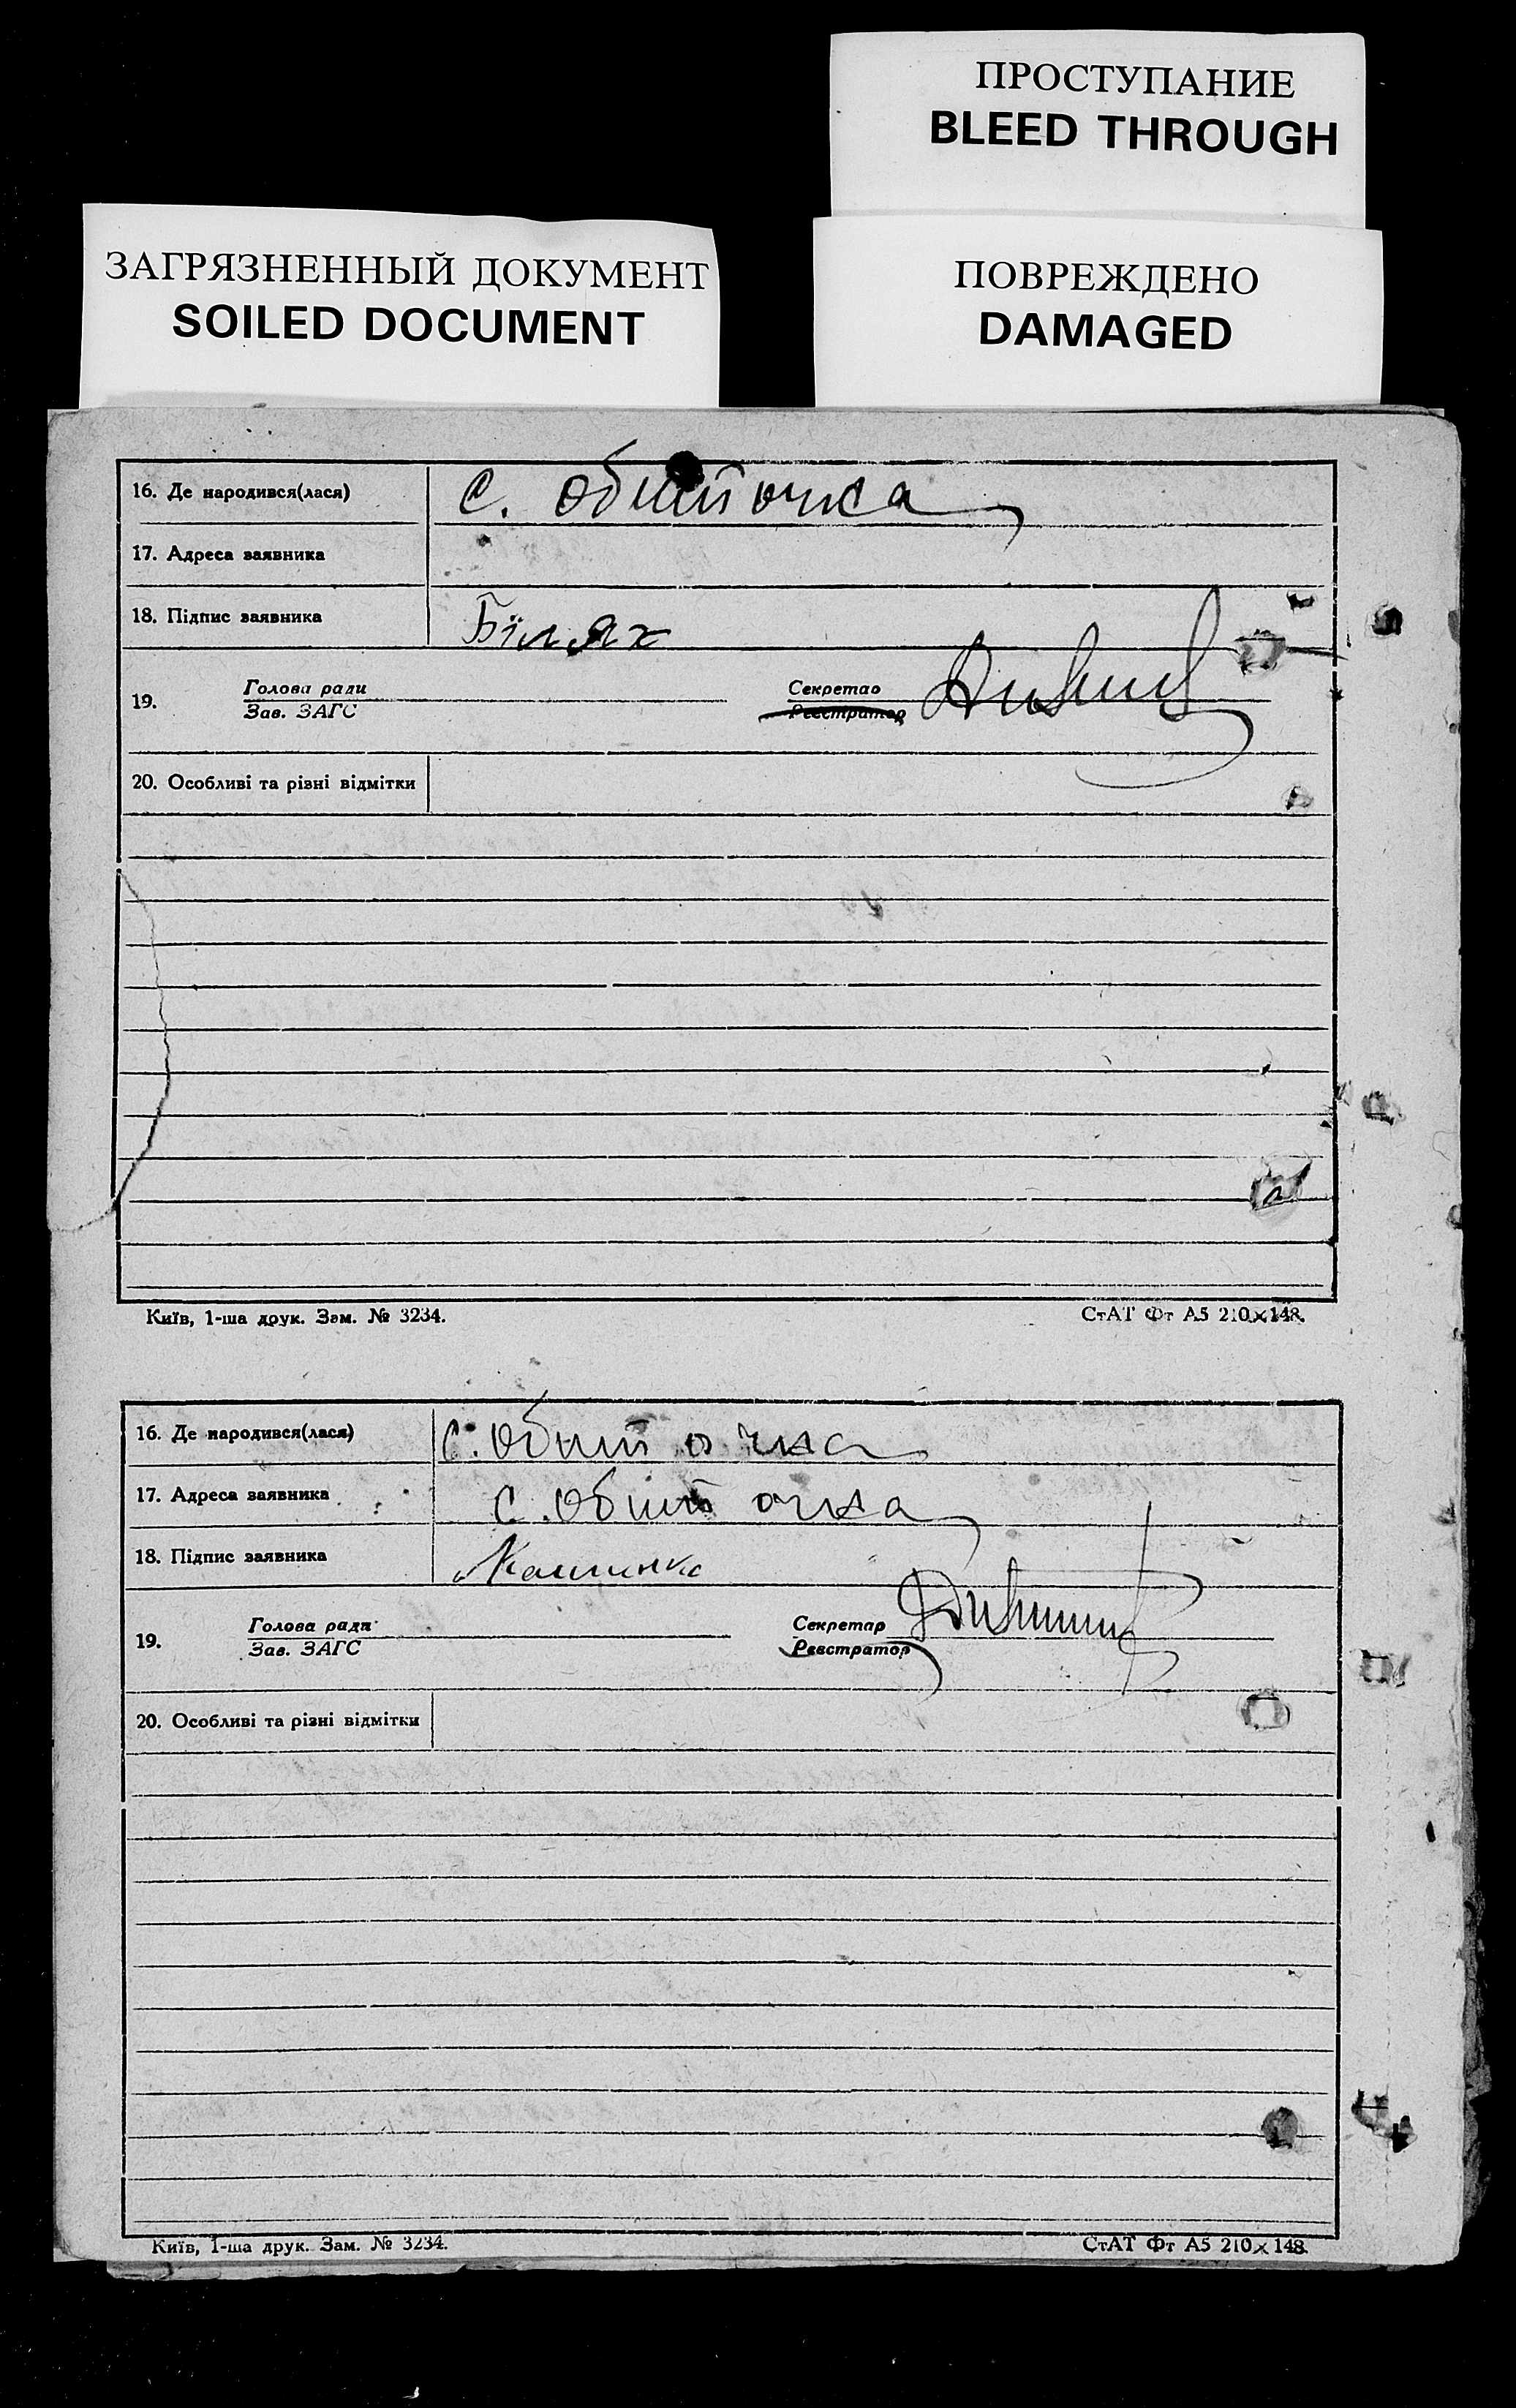 ПРОСТУПАНИЕ
BLEED THROUGH
ЗАГРЯЗНЕННЫЙ ДОКУМЕНТ
SOILED DOCUMENT
ПОВРЕЖДЕНО
DAMAGED
16. Де народився(лася) с. Обиточка
17. Адреса заявника
18. Підпис заявника Біляк
19. Голова ради Секретар
Зав. ЗАГС Реєстратор
20. Особливі та різні відмітки
Київ, 1-ша друк. Зам. № 3234. СтАТ Фт А5 210×148.
16. Де народився(лася) с. Обиточка
17. Адреса заявника с. Обиточка
18. Підпис заявника
19. Голова ради Секретар
Зав. ЗАГС Реєстратор
20. Особливі та різні відмітки
Київ, 1-ша друк. Зам. № 3234. СтАТ Фт А5 210×148.